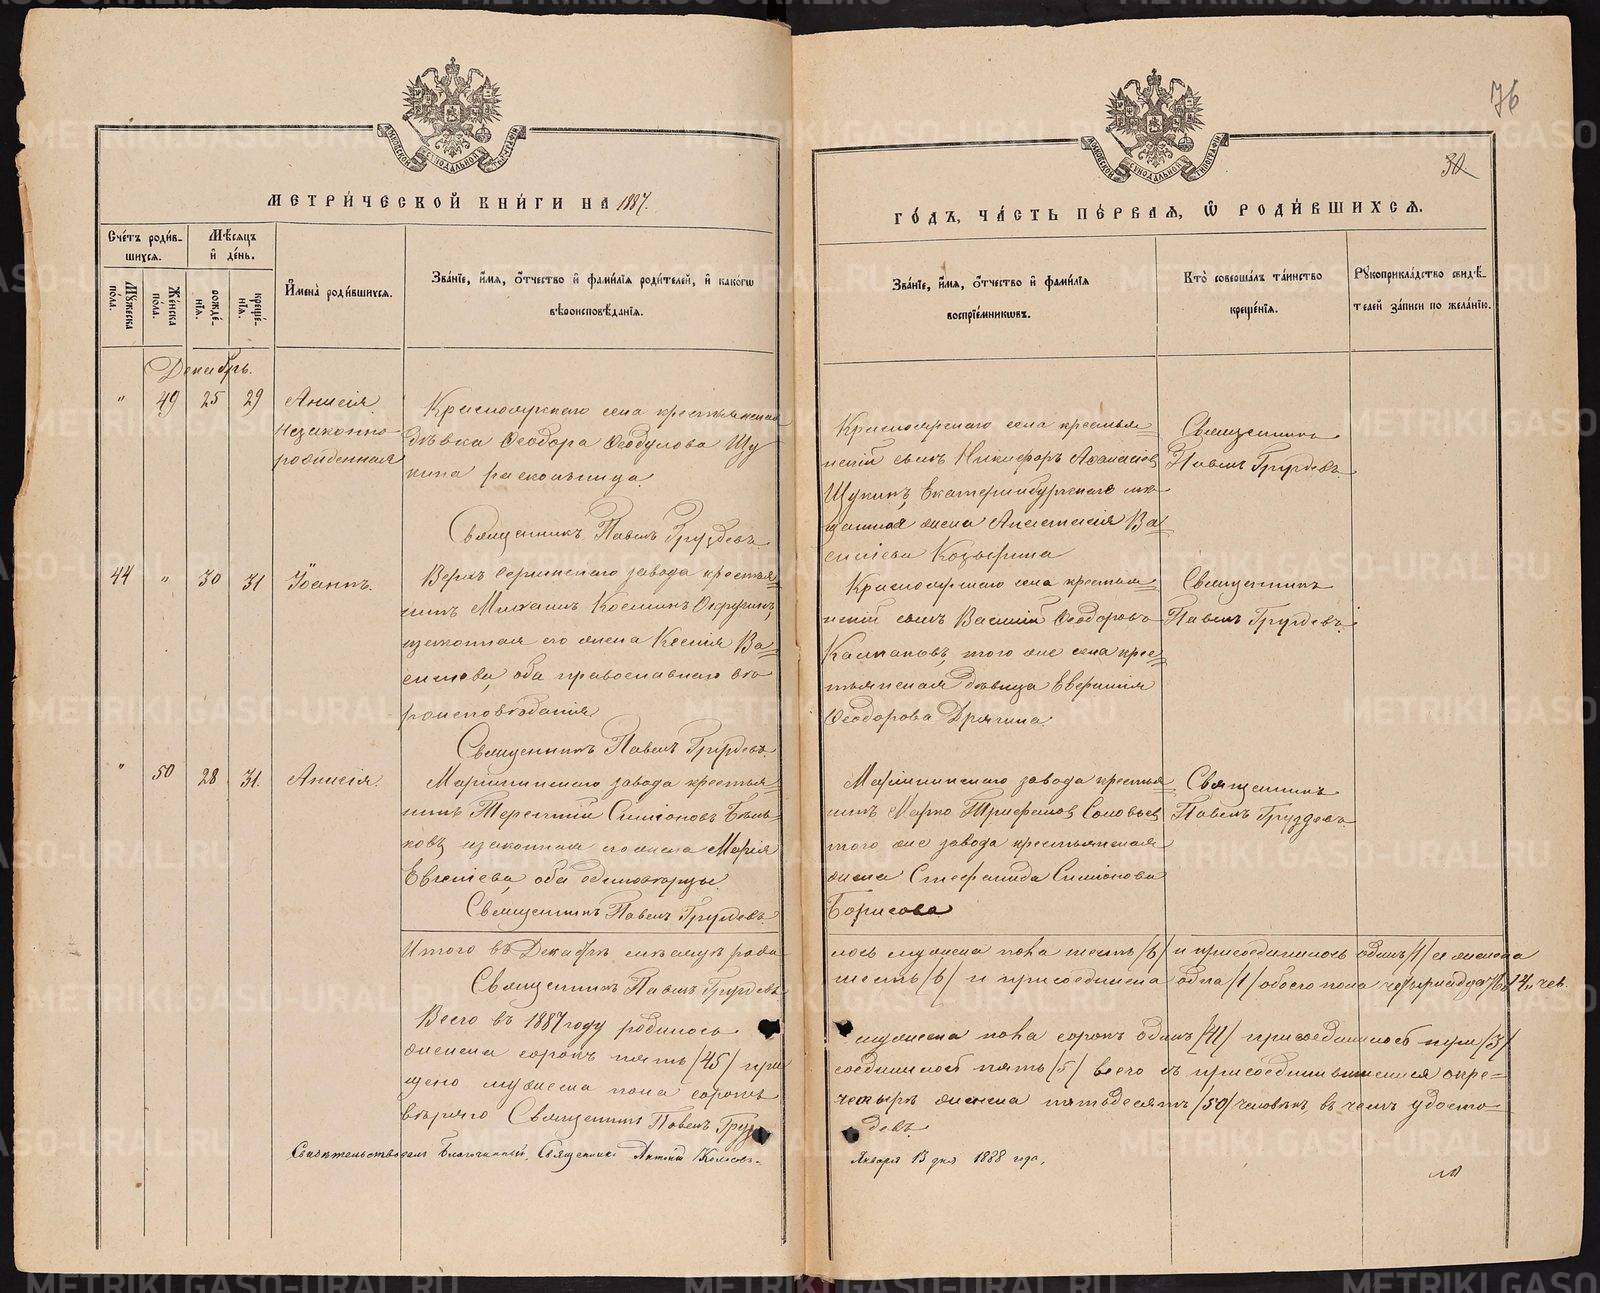 76
32
МОСКОВСКОЙ СѴНОДАЛЬНОЙ ТИПОГРАФІИ
МОСКОВСКОЙ СѴНОДАЛЬНОЙ ТИПОГРАФІИ
МЕТРИ́ЧЕСКОЙ КНИ́ГИ НА 1887.
ГО́ДЪ, ЧА́СТЬ ПЕ́РВАЯ, Ѡ РОДИ́ВШИХСЯ.
Сче́тъ роди́в-
шихся.
Мꙋ́жеска по́ла.
Же́нска по́ла.
Мѣ́сяцъ
и де́нь.
рожде́-
нія.
креще́-
нія.
Имена̀ роди́вшихся.
Зва́нїе, и́мя, о́тчество и фами́лїя роди́телей, и како́гѡ
вѣроисповѣ́данїя.
Зва́нїе, и́мя, о́тчество и фами́лїя
воспрїе́мникѡвъ.
Кто̀ соверша́лъ та́инство
креще́нїя.
Рꙋкоприкла́дство свидѣ́-
телей за́писи по жела́нїю.
Декабрь.
" 49 25 29
Анисія
незаконно
рожденная
Красноярскаго села крестьянская
дѣвка Ѳеодора Ѳеодулова Щу
кина раскольница.
Священникъ Павелъ Груздевъ
Красноярскаго села крестьян
скій сынъ Никифоръ Аѳанасіев
Щукинъ, Екатеринбургскаго мѣ
щанина жена Анастасія Ва
сильева Козырина
Священникъ
Павелъ Груздевъ.
44 " 30 31
Іоаннъ.
Верхъ Сергинскаго завода крестья
нинъ Михаилъ Косминъ Окружинъ,
и законная его жена Ксенія Ва
сильева, оба православнаго вѣ
роисповѣданія
Священникъ Павелъ Груздевъ.
Красноярскаго села крестьян
скій сынъ Василій Ѳеодоровъ
Калмаковъ, того же села крес
тьянская дѣвица Евфимія
Ѳеодорова Дрягина.
Священникъ
Павелъ Груздевъ.
" 50 28 31.
Анисія.
Маріинскаго завода крестья
нинъ Терентій Симіоновъ Бѣль
ковъ, и законная его жена Марія
Евгеніева, оба единовѣрцы.
Священникъ Павелъ Груздевъ.
Маріинскаго завода крестья
нинъ Марко Трифоновъ Соловьев
того же завода крестьянская
жена Стефанида Симіонова
Борисова
Священникъ
Павелъ Груздевъ.
Итого въ Декабрѣ мѣсяцѣ роди
лось мужеска пола шесть /6/ и присоединилось одинъ /1/ и женска
Священникъ Павелъ Груздевъ
шесть /6/ и присоединена одна /1/ обоего пола четырнадцать 14 чел.
Всего въ 1887 году родилось
мужеска пола сорокъ одинъ /41/ присоединилось три /3/
женска сорокъ пять /45/ при
соединилось пять /5/ всего съ присоединившимися окре=
щено мужеска пола сорокъ
четыре женска пятьдесятъ /50/ человѣкъ, въ чемъ удосто
вѣряю Священникъ Павелъ Груз
девъ.
Свидѣтельствовалъ Благочинный, Священникъ
Января 13 дня 1888 года.
METRIKI.GASO-URAL.RU